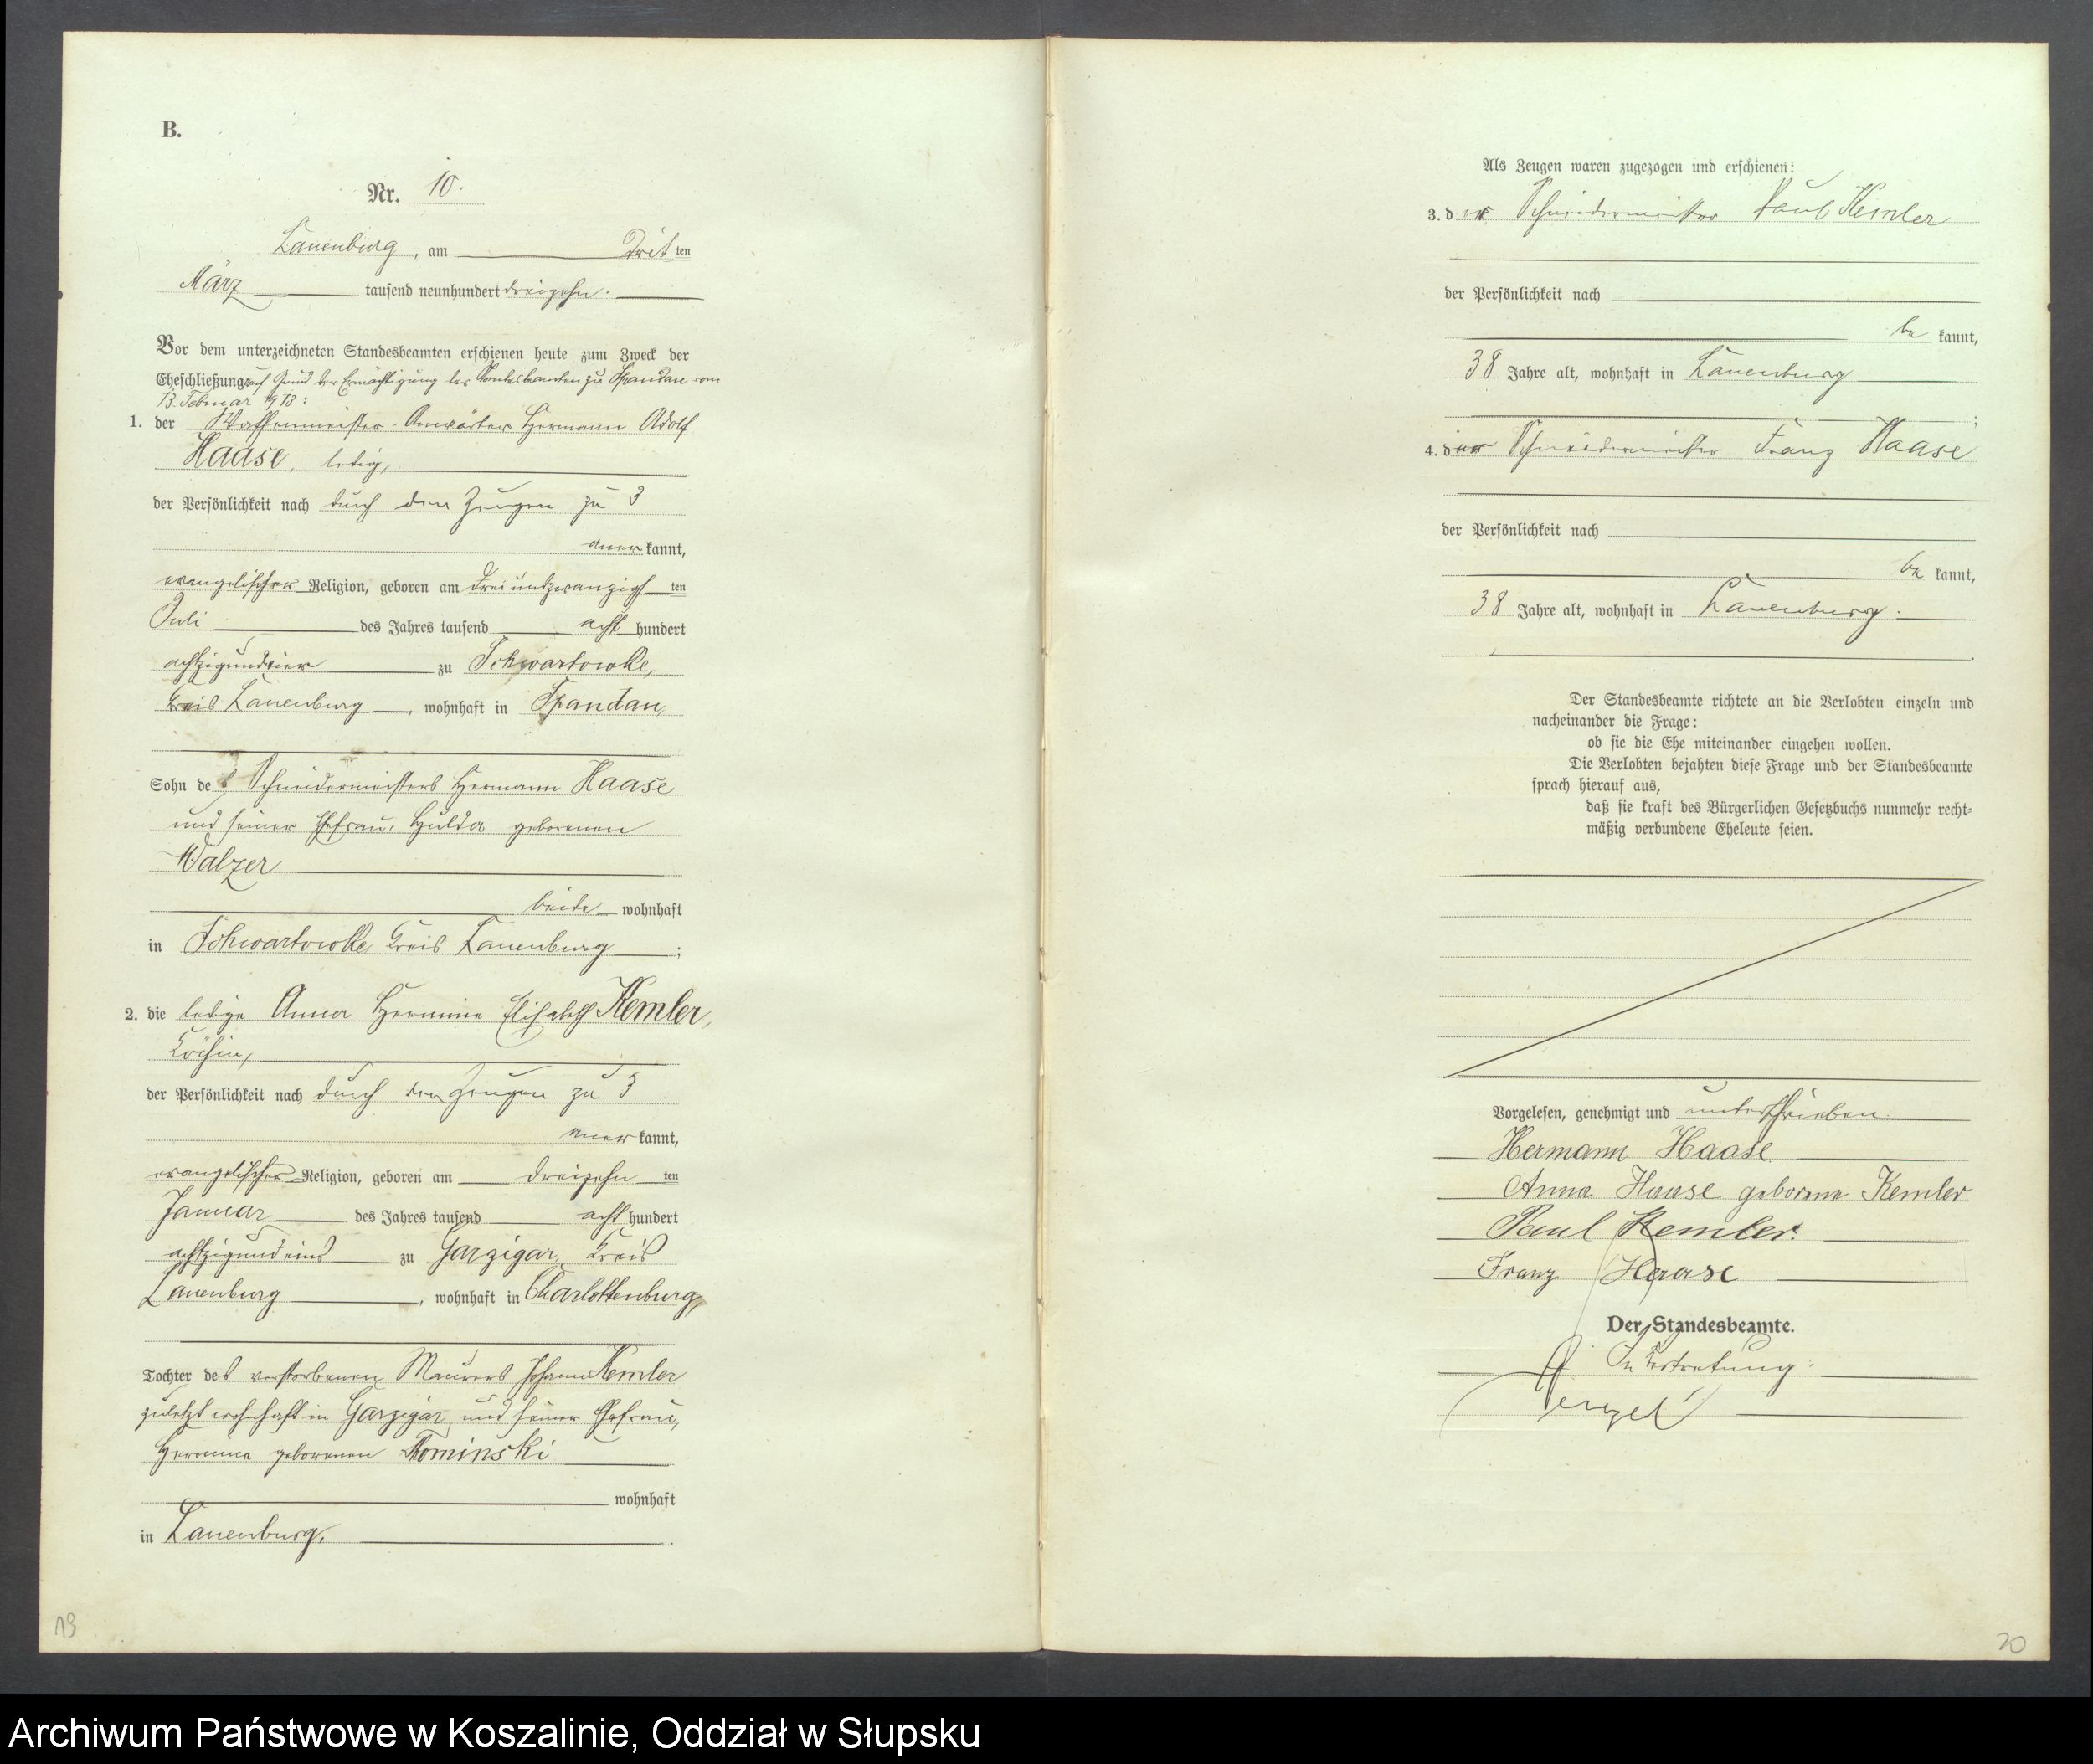 B.
Nr. 10.
Lauenburg, am Drit ten
März tausend neunhundert dreizehn.
Vor dem unterzeichneten Standesbeamten erschienen heute zum Zweck der
Eheschließung auf Grund der Ermächtigung des Standesbeamten zu Spandau vom
13. Februar 1913:
1. der Waffenmeister-Anwärter Hermann Adolf
Haase, ledig,
der Persönlichkeit nach durch den Zeugen zu 3
aner kannt,
evangelischer Religion, geboren am dreiundzwanzigs ten
Juli des Jahres tausend acht hundert
achtzigundvier zu Schwartowke,
Kreis Lauenburg, wohnhaft in Spandau,
Sohn des Schneidermeisters Hermann Haase
und seiner Ehefrau, Hulda geborenen
Walzer
beide wohnhaft
in Schwartowke Kreis Lauenburg;
2. die ledige Anna Hermine Elisabeth Kemler,
Köchin,
der Persönlichkeit nach durch den Zeugen zu 3
aner kannt,
evangelischer Religion, geboren am dreizehn ten
Januar des Jahres tausend acht hundert
achtzigundeins zu Garzigar, Kreis
Lauenburg, wohnhaft in Charlottenburg,
Tochter des verstorbenen Maurers Johann Kemler
zuletzt wohnhaft in Garzigar und seiner Ehefrau,
Hermine geborenen
wohnhaft
in Lauenburg.
19
Als Zeugen waren zugezogen und erschienen:
3. der Schneidermeister Paul Kemler
der Persönlichkeit nach
be kannt,
38 Jahre alt, wohnhaft in Lauenburg
;
4. der Schneidermeister Franz Haase
der Persönlichkeit nach
be kannt,
38 Jahre alt, wohnhaft in Lauenburg.
Der Standesbeamte richtete an die Verlobten einzeln und
nacheinander die Frage:
ob sie die Ehe miteinander eingehen wollen.
Die Verlobten bejahten diese Frage und der Standesbeamte
sprach hierauf aus,
daß sie kraft des Bürgerlichen Gesetzbuchs nunmehr recht-
mäßig verbundene Eheleute seien.
Vorgelesen, genehmigt und unterschrieben
Hermann Haase
Anna Haase geborene Kemler
Paul Kemler.
Franz Haase
Der Standesbeamte.
In Vertretung:
20
Archiwum Państwowe w Koszalinie, Oddział w Słupsku